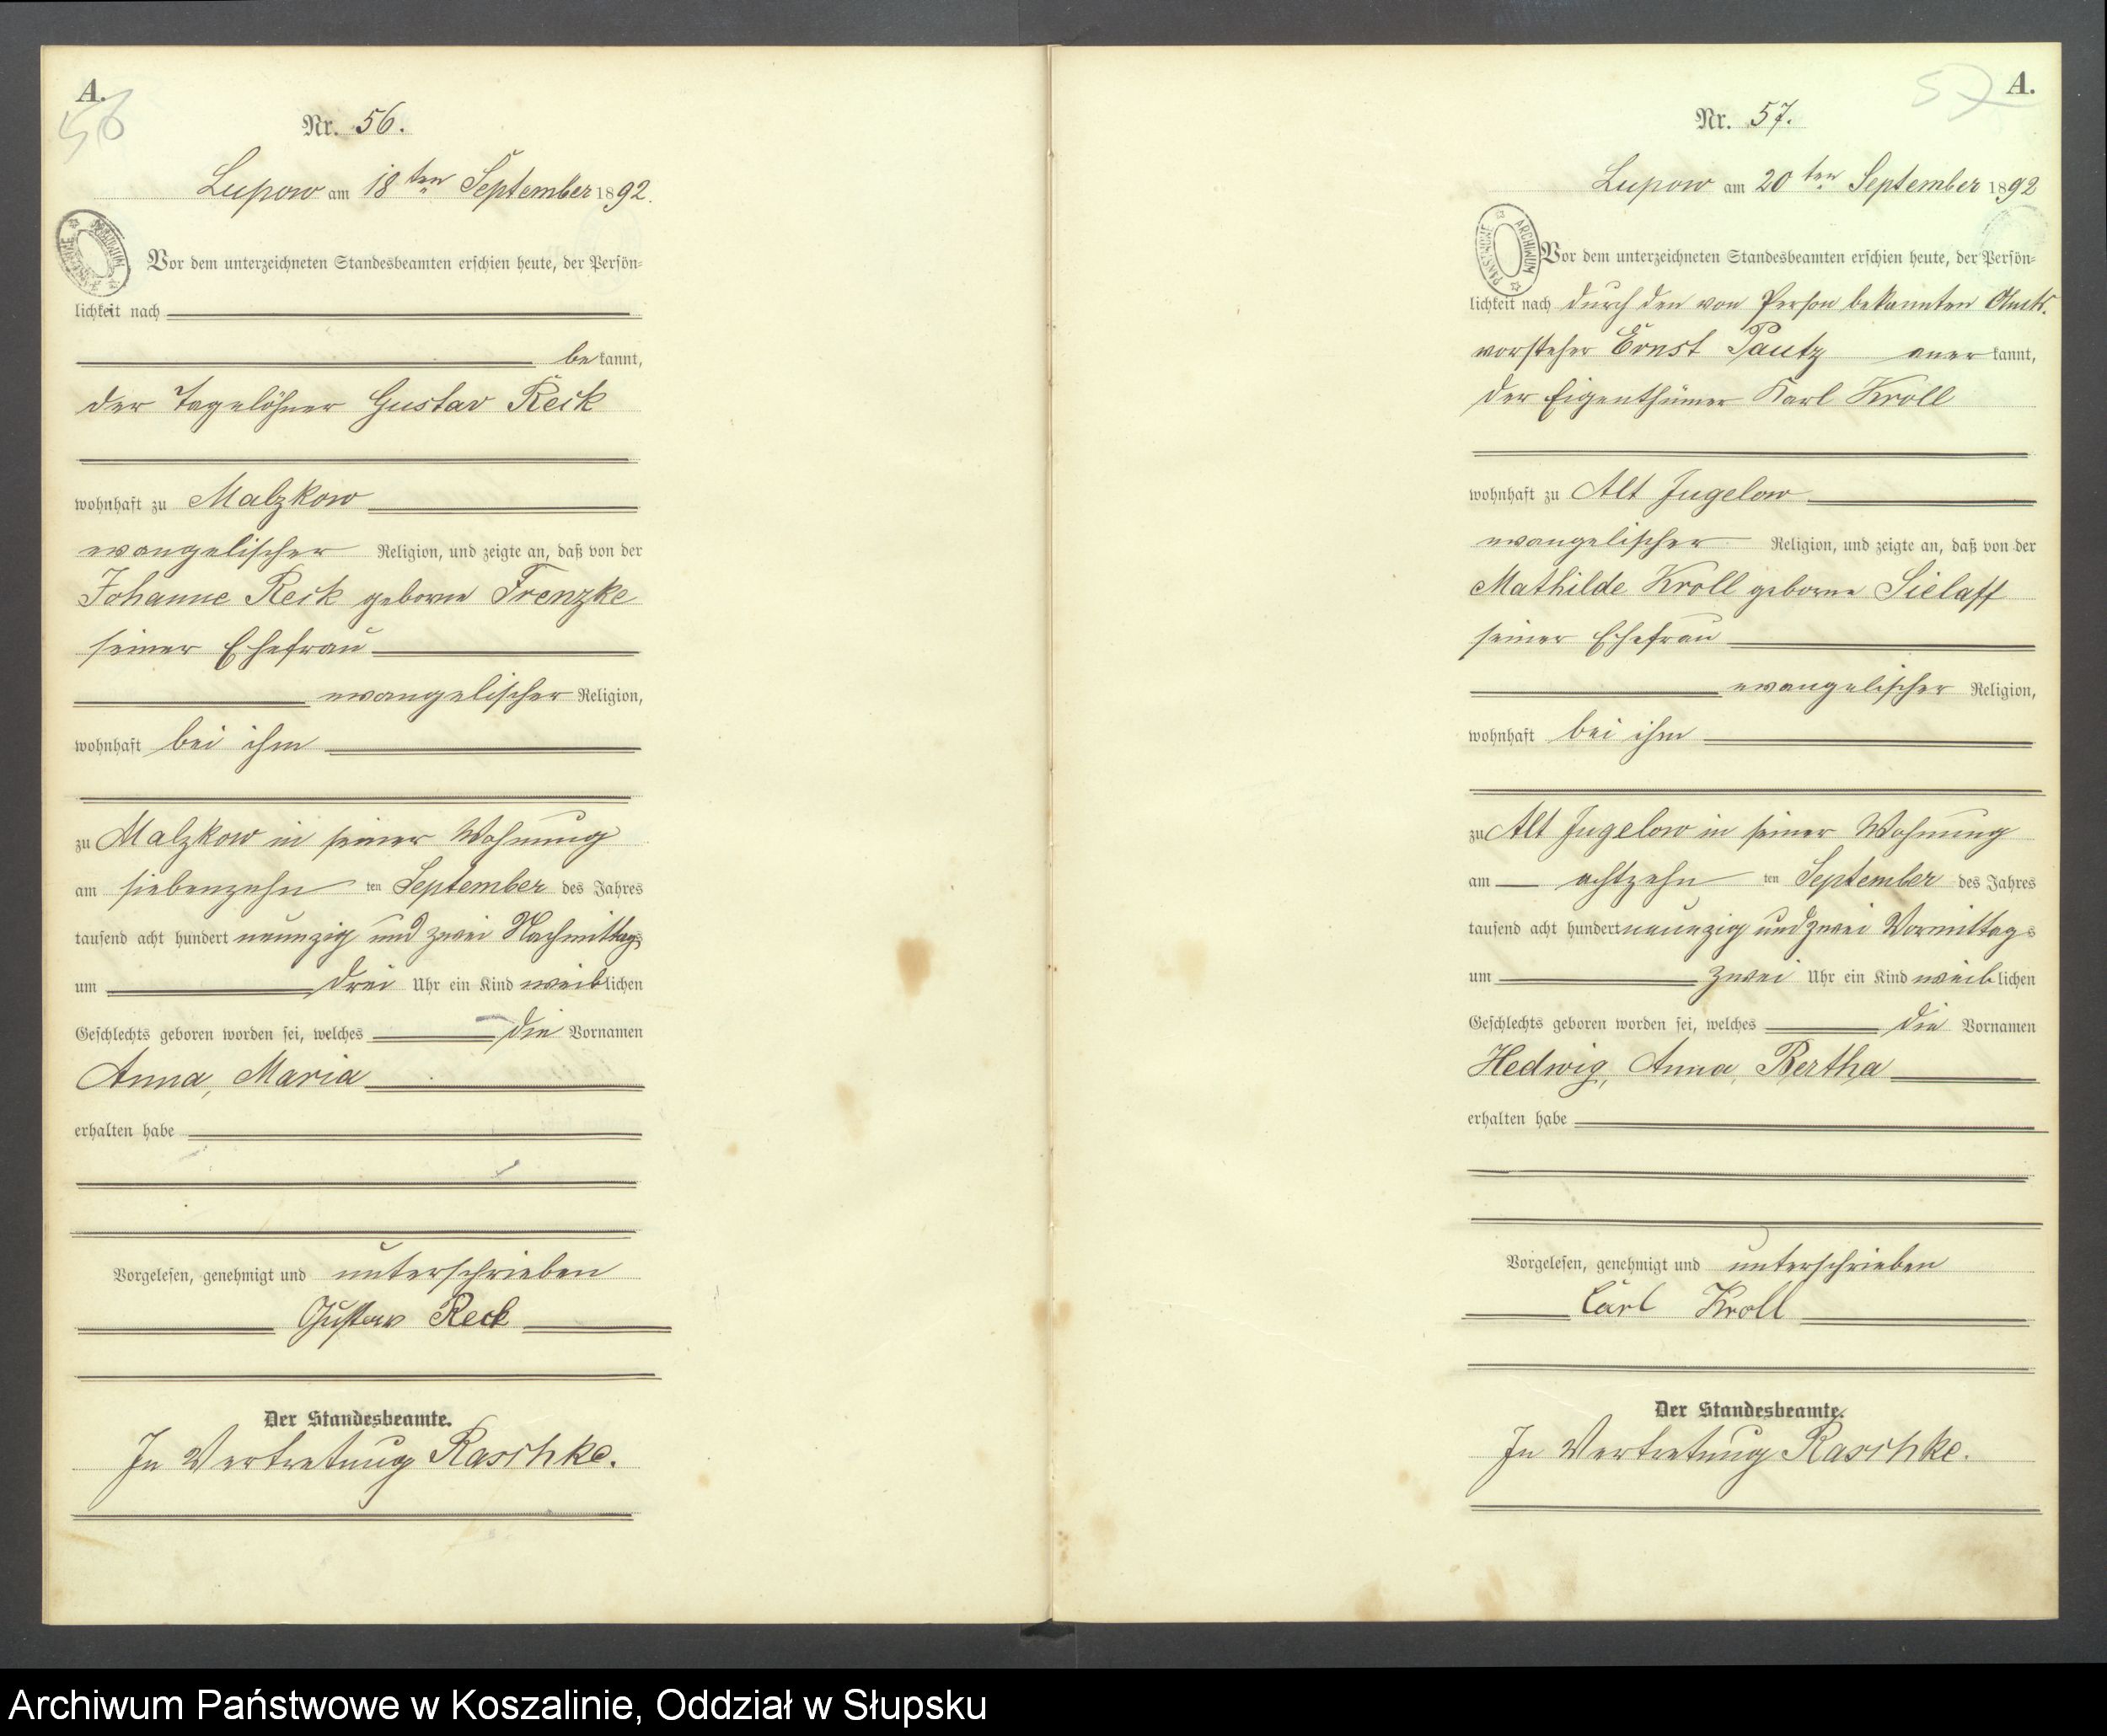 A.
56
Nr. 56.
Lupow am 18ten September 1892.
ARCHIWUM PAŃSTWOWE
Vor dem unterzeichneten Standesbeamten erschien heute, der Persön=
lichkeit nach
bekannt,
der Tagelöhner Gustav Reck
wohnhaft zu Malzkow
evangelischer Religion, und zeigte an, daß von der
Johanne Reck geborne Frenzke
seiner Ehefrau
evangelischer Religion,
wohnhaft bei ihm
zu Malzkow in seiner Wohnung
am siebenzehn ten September des Jahres
tausend acht hundert neunzig und zwei Nachmittags
um drei Uhr ein Kind weiblichen
Geschlechts geboren worden sei, welches die Vornamen
Anna, Maria
erhalten habe
Vorgelesen, genehmigt und unterschrieben
Gustav Reck
Der Standesbeamte.
In Vertretung Raschke.
57
A.
Nr. 57.
Lupow am 20ten September 1892
ARCHIWUM PAŃSTWOWE
Vor dem unterzeichneten Standesbeamten erschien heute, der Persön=
lichkeit nach durch den von Person bekannten Amts-
vorsteher Ernst Pautz anerkannt,
der Eigenthümer Karl Kroll
wohnhaft zu Alt Jugelow
evangelischer Religion, und zeigte an, daß von der
Mathilde Kroll geborne Sielaff
seiner Ehefrau
evangelischer Religion,
wohnhaft bei ihm
zu Alt Jugelow in seiner Wohnung
am achtzehn ten September des Jahres
tausend acht hundert neunzig und zwei Vormittags
um zwei Uhr ein Kind weiblichen
Geschlechts geboren worden sei, welches die Vornamen
Hedwig, Anna, Bertha
erhalten habe
Vorgelesen, genehmigt und unterschrieben
Carl Kroll
Der Standesbeamte.
In Vertretung Raschke.
Archiwum Państwowe w Koszalinie, Oddział w Słupsku